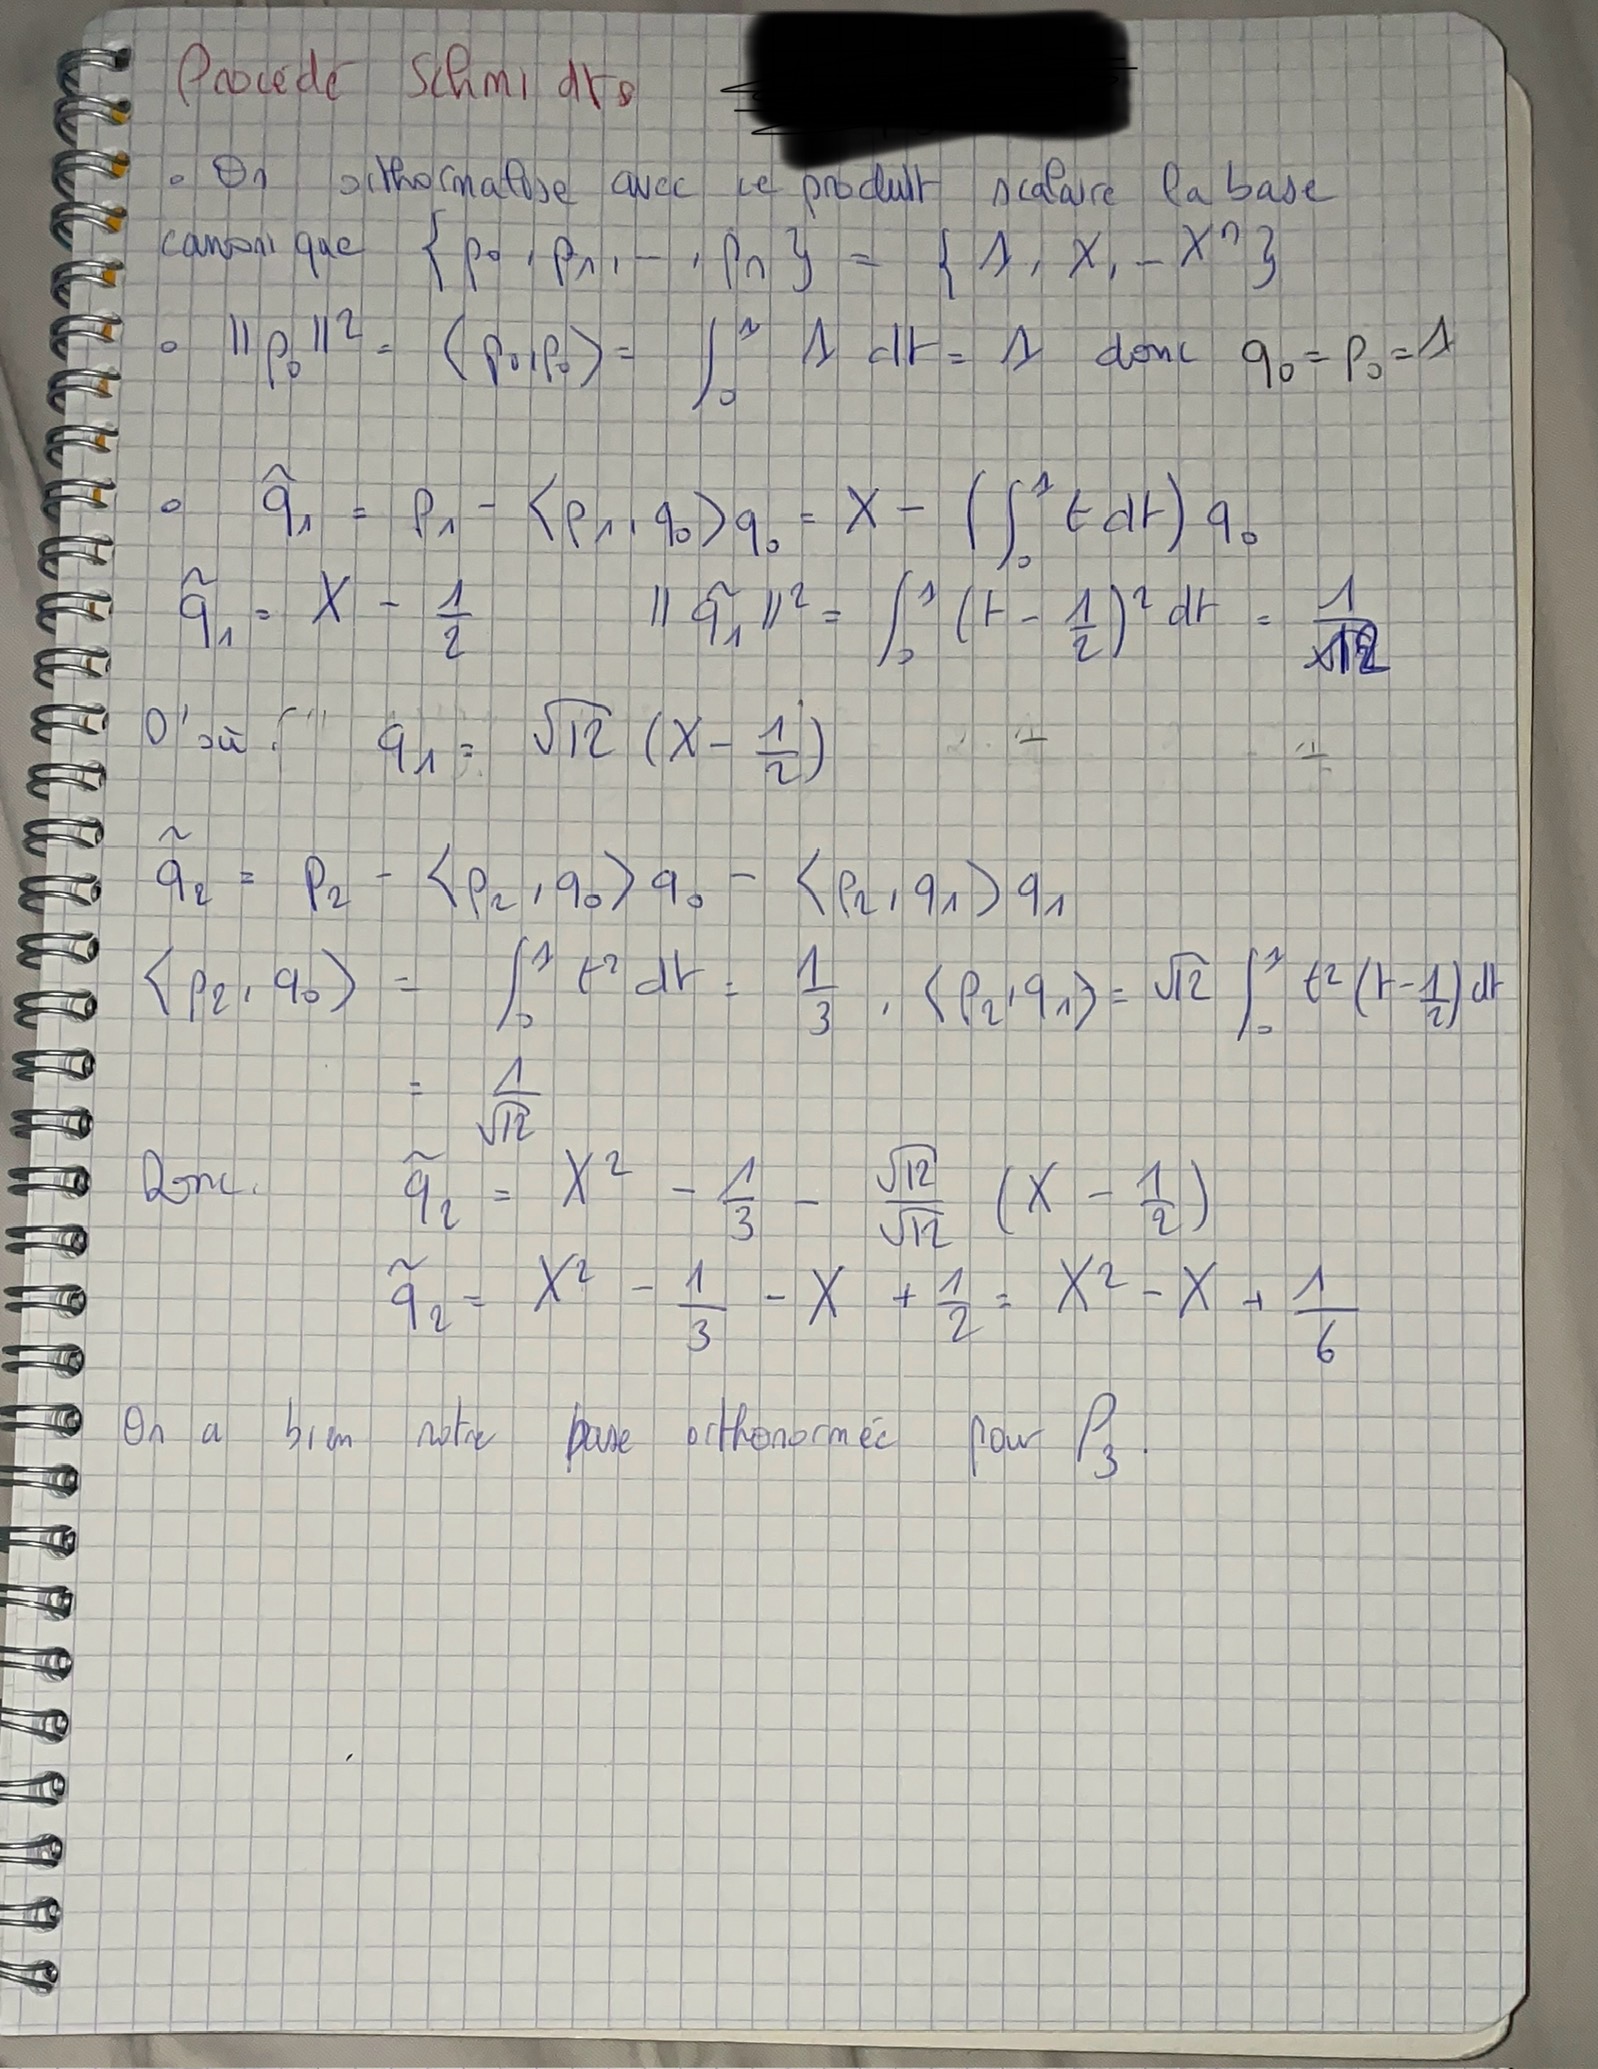 Procédé Schmidt :
• On orthormalise avec ce produit scalaire la base
canonique {p₀, p₁, -, pₙ} = {1, X, - Xⁿ}
• ||p₀||² = ⟨p₀,p₀⟩ = ∫₀¹ 1 dt = 1 donc q₀ = p₀ = 1
• q̃₁ = p₁ - ⟨p₁, q₀⟩q₀ = X - (∫₀¹ t dt) q₀
q̃₁ = X - 1/2 ||q̃₁||² = ∫₀¹ (t - 1/2)² dt = 1/12
D'où q₁ = √12 (X - 1/2)
q̃₂ = p₂ - ⟨p₂, q₀⟩q₀ - ⟨p₂, q₁⟩q₁
⟨p₂, q₀⟩ = ∫₀¹ t² dt = 1/3, ⟨p₂, q₁⟩ = √12 ∫₀¹ t² (t - 1/2) dt
= 1/√12
Donc. q̃₂ = X² - 1/3 - √12/√12 (X - 1/2)
q̃₂ = X² - 1/3 - X + 1/2 = X² - X + 1/6
On a bien notre base orthonormée pour P₃.